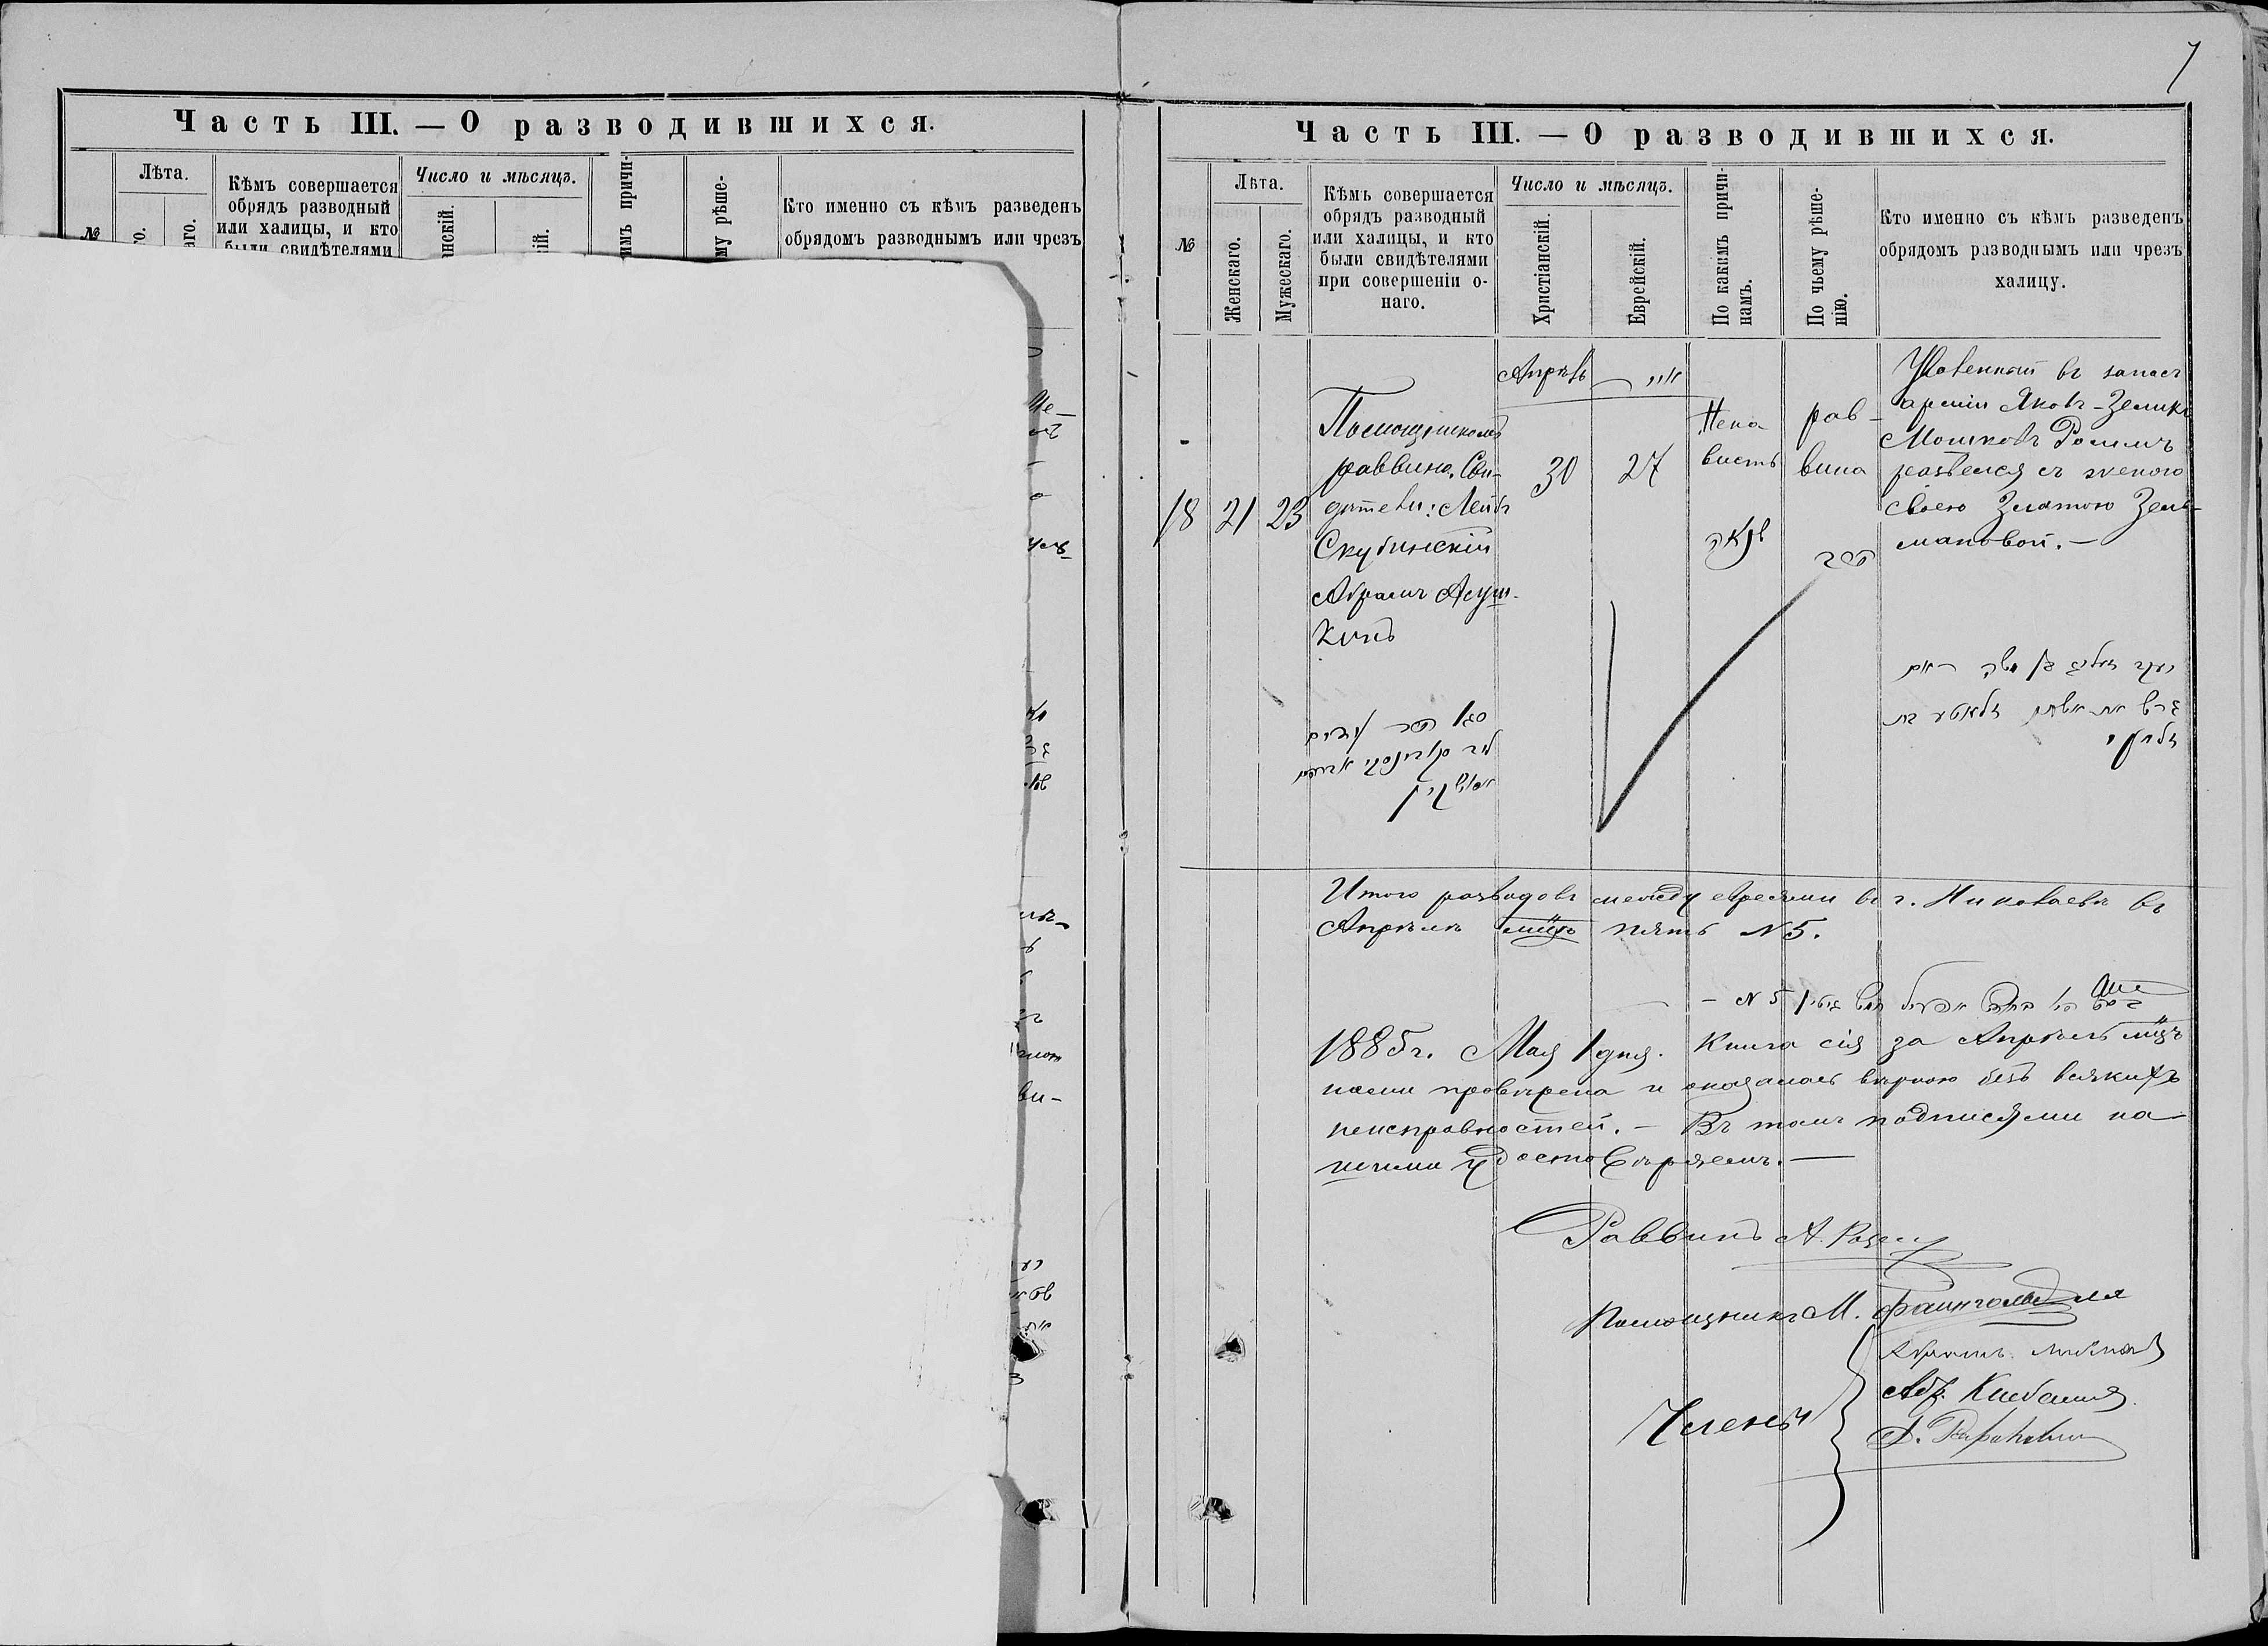 Часть III. — О разводившихся.
№
Лѣта.
Кѣмъ совершается
обрядъ разводный
или халицы, и кто
были свидѣтелями
Число и мѣсяцъ.
Кто именно съ кѣмъ разведенъ
обрядомъ разводнымъ или чрезъ
7
Часть III. — О разводившихся.
№
Лѣта.
Женскаго.
Мужескаго.
Кѣмъ совершается
обрядъ разводный
или халицы, и кто
были свидѣтелями
при совершеніи о-
наго.
Число и мѣсяцъ.
Христіанскій.
Еврейскій.
По какимъ причи-
намъ.
По чьему рѣше-
нію.
Кто именно съ кѣмъ разведенъ
обрядомъ разводнымъ или чрезъ
халицу.
18
21
23
Помощникомъ
раввина. Сви-
дѣтели: Лейбъ
Скубинскій
Абрамъ Асуш-
кинъ
סגן הרב
אברהם
אסושקין
Апрѣль
30
27
Нена
висть
שנאה
рав-
вина
הרב
Уволенный въ запасъ
арміи Яковъ-Зеликъ
Мошковъ
развелся съ женою
своею Златою Зель-
мановой. —
יעקב זעליג בן משה
גרש את אשתו זלאטע בת
זלמן
Итого разводовъ между евреями въ г. Николаевѣ въ
Апрѣлѣ мцѣ пять №5.
— № 5
1885 г. Мая 1 дня. Книга сія за Апрѣль мцъ
нами провѣрена и оказалась вѣрною безъ всякихъ
неисправностей. — Въ томъ подписями на-
шими удостовѣряемъ. —
Раввинъ А.
Помощникъ М.
Члены